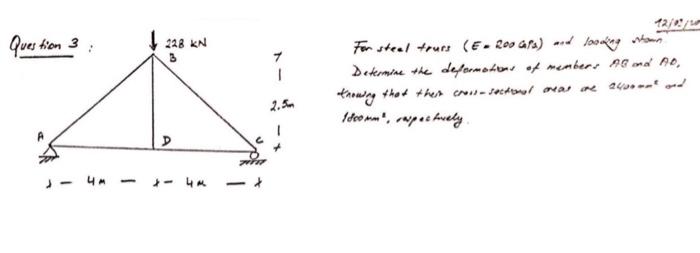 12/03/20
Question 3 :
228 kN
B
For steel truss (E = 200 GPa) and loading shown.
Determine the deformations of members AB and AD,
knowing that their cross-sectional areas are 2400 mm² and
1800 mm², respectively.
2.5m
A
D
C
4m
4m